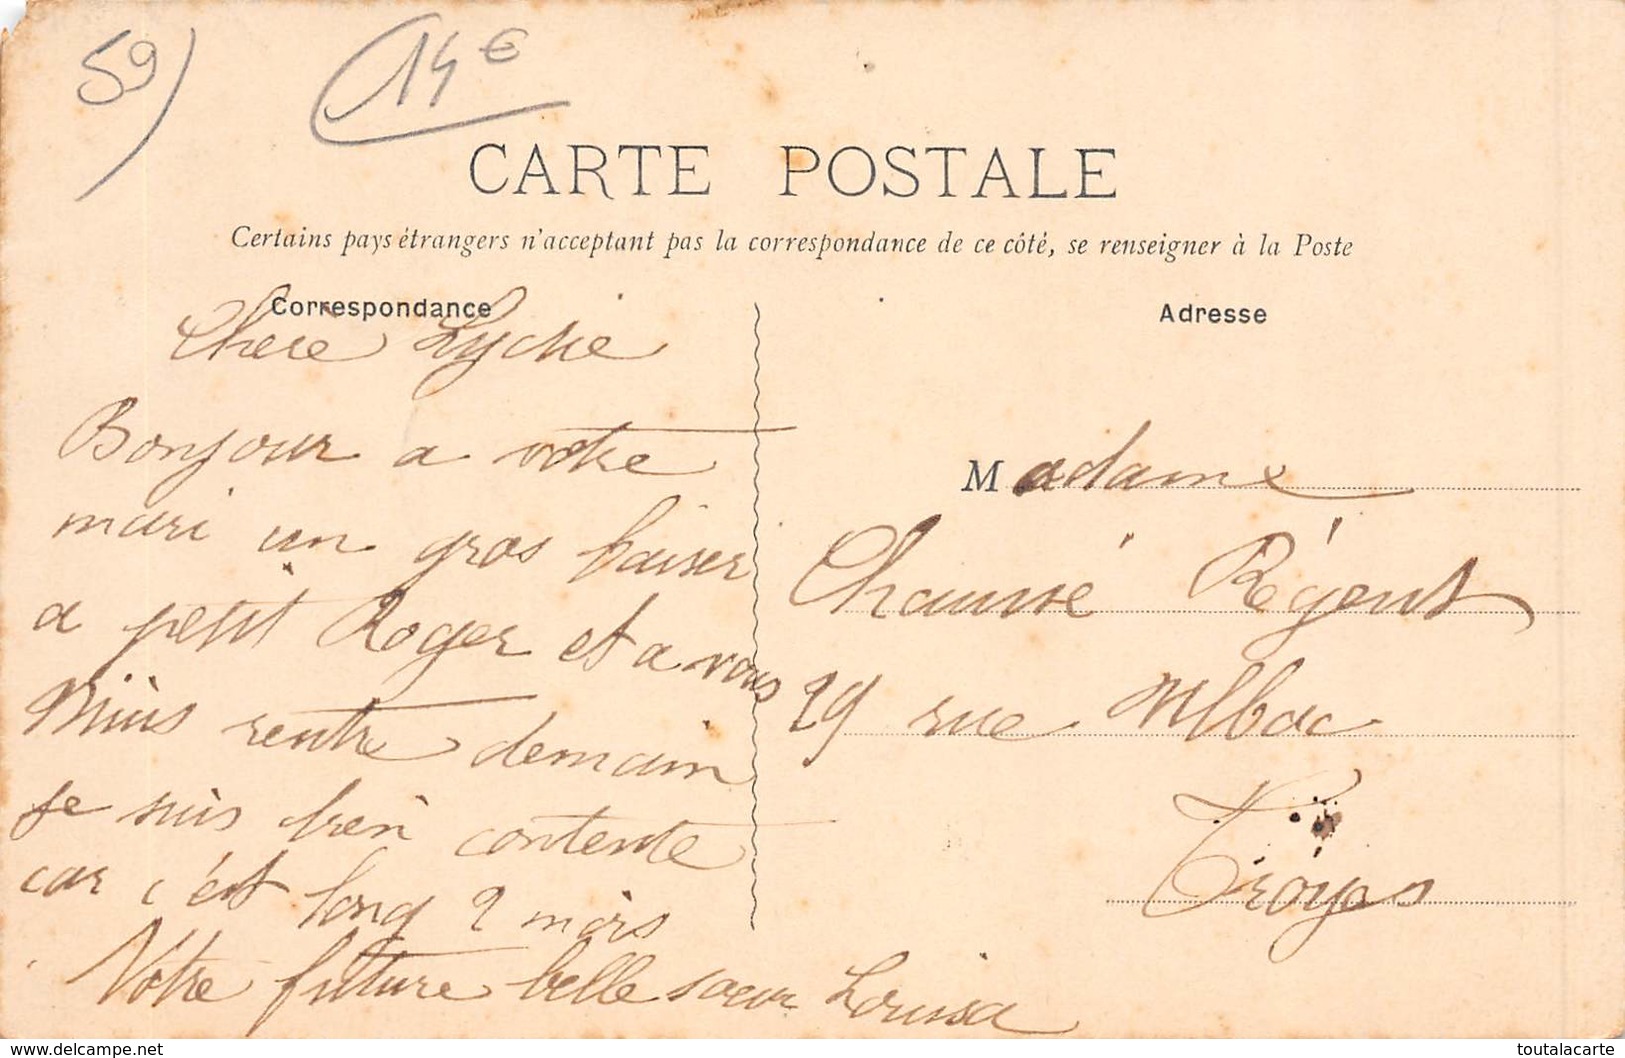 59)
14€
CARTE POSTALE
Certains pays étrangers n'acceptant pas la correspondance de ce côté, se renseigner à la Poste
Correspondance
Adresse
Chere
Bonjour a votre
mari un gros baiser
a petit Roger et a vous
rentre demain
je suis bien contente
car c'est long 2 mois
Votre future belle sœur Louisa
Madame
Chaussé Régent
29 rue
Troyes
delcampe.net
toutalacarte